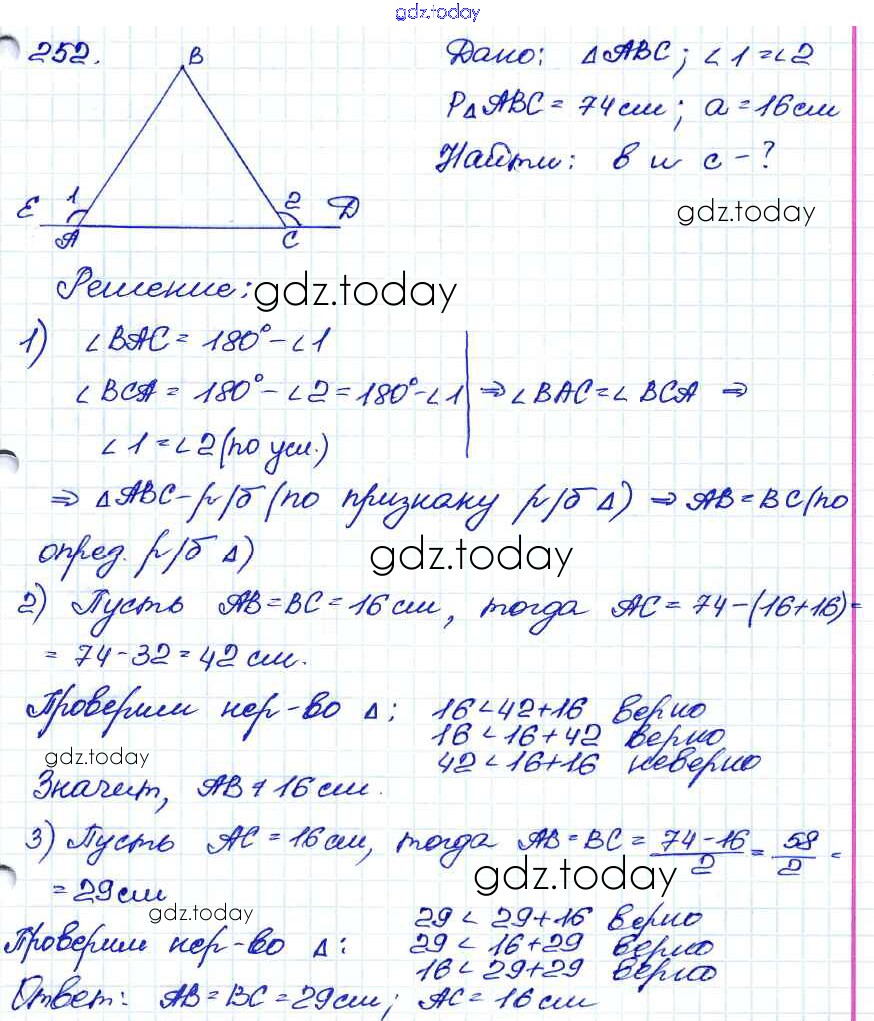 gdz.today
252.
B
Дано: △ABC; ∠1=∠2
P△ABC = 74см; a=16см
Найти: в и с -?
E 1 2 D
A C
gdz.today
Решение: gdz.today
1) ∠BAC = 180° - ∠1
∠BCA = 180° - ∠2 = 180° - ∠1 ⇒ ∠BAC = ∠BCA ⇒
∠1 = ∠2 (по усл.)
⇒ △ABC - р/б (по признаку р/б △) ⇒ AB = BC (по
опред. р/б △)
gdz.today
2) Пусть AB=BC=16 см, тогда AC = 74-(16+16)=
= 74-32=42 см.
Проверим нер-во △: 16<42+16 верно
16 < 16+42 верно
gdz.today
42 < 16+16 неверно
Значит, AB ≠ 16 см.
3) Пусть AC = 16см, тогда AB = BC = 74-16/2 = 58/2 =
gdz.today
= 29см
gdz.today
29 < 29+16 верно
Проверим нер-во △: 29 < 16+29 верно
16 < 29+29 верно
Ответ: AB=BC=29см; AC=16см